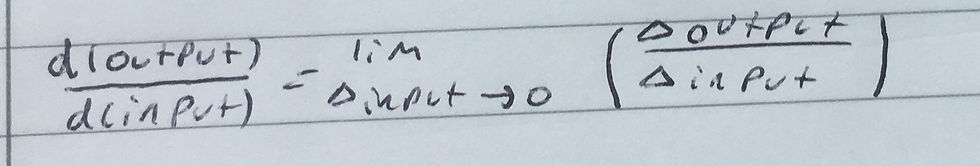 d(output)/d(input) = lim Δinput→0 (Δoutput/Δinput)